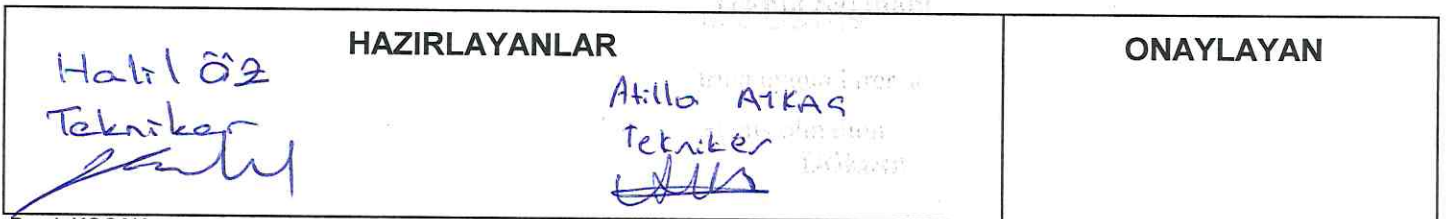 HAZIRLAYANLAR
ONAYLAYAN
Halil ÖZ
Tekniker
Atilla AYKAÇ
Tekniker